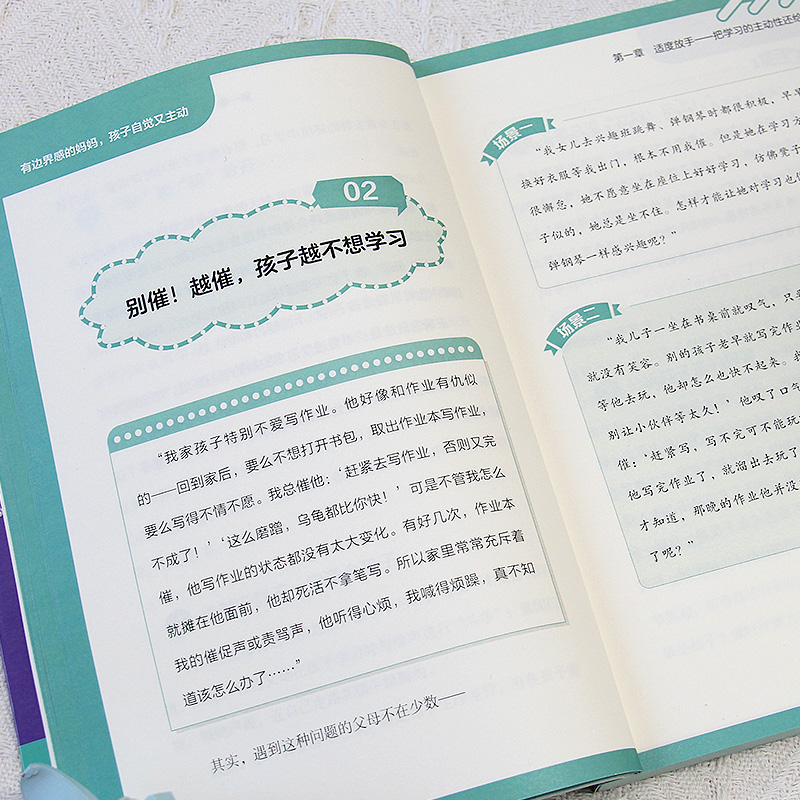 有边界感的妈妈，孩子自觉又主动
02
别催！越催，孩子越不想学习
“我家孩子特别不爱写作业。他好像和作业有仇似
的——回到家后，要么不想打开书包，取出作业本写作业，
要么写得不情不愿。我总催他：‘赶紧去写作业，否则又完
不成了！’‘这么磨蹭，乌龟都比你快！’可是不管我怎么
催，他写作业的状态都没有太大变化。有好几次，作业本
就摊在他面前，他却死活不拿笔写。所以家里常常充斥着
我的催促声或责骂声，他听得心烦，我喊得烦躁，真不知
道该怎么办了……”
其实，遇到这种问题的父母不在少数——
第一章 适度放手——把学习的主动性还给
场景一
“我女儿去兴趣班跳舞、弹钢琴时都很积极，早早
换好衣服等我出门，根本不用我催。但是她在学习方
很懈怠，她不愿意坐在座位上好好学习，仿佛凳子
子似的，她总是坐不住。怎样才能让她对学习也像
弹钢琴一样感兴趣呢？”
场景二
“我儿子一坐在书桌前就叹气，只要
就没有笑容。别的孩子老早就写完作业
等他去玩，他却怎么也快不起来。
别让小伙伴等太久！’他叹了口气
催：‘赶紧写，写不完可不能玩
他写完作业了，就溜出去玩了
才知道，那晚的作业他并没
了呢？”